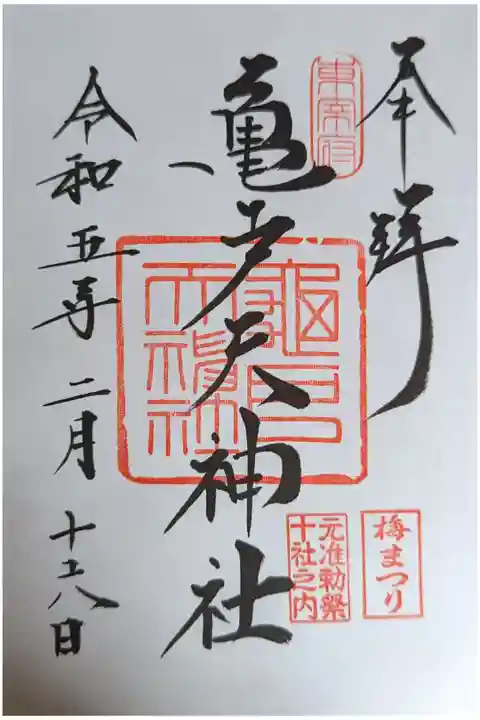 奉拝
東宰府
亀戸天神社
龜戸
天神社
令和五年二月十日
梅まつり
元准勅祭
十社之内